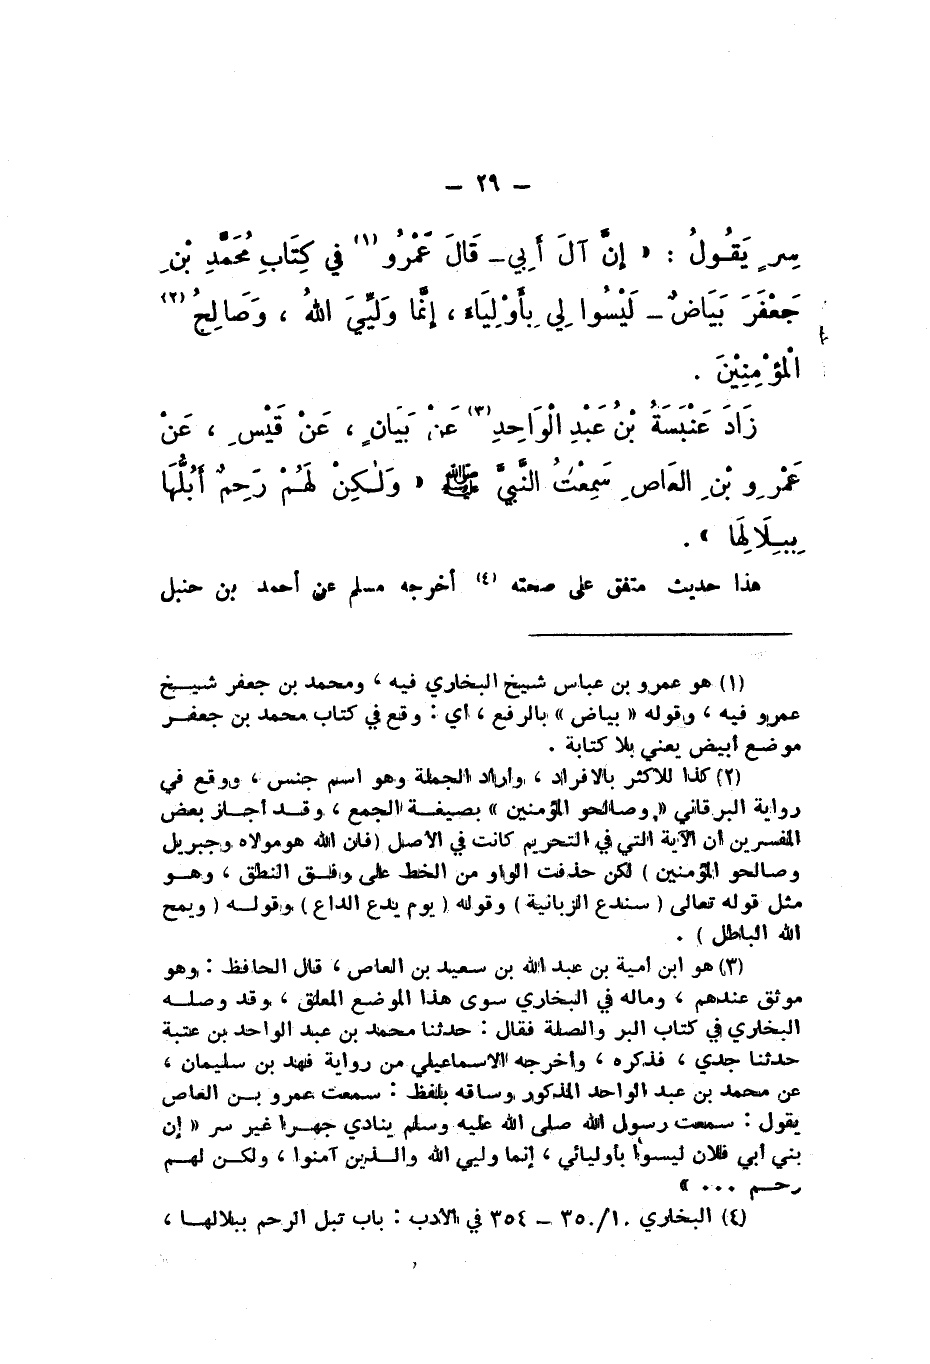 – ٢٩ –
سِرٍ يَقُولُ : « إِنَّ آلَ أَبِي – قَالَ عَمْرُو (١) في كِتَابِ مُحَمَّدِ بْنِ
جَعْفَرَ بَيَاضٌ – لَيْسُوا لِي بِأَوْلِيَاءَ ، إِنَّمَا وَلِيِّيَ اللهُ ، وَصَالِحُ (٢)
الْمُؤْمِنِيْنَ .
زَادَ عَنْبَسَةُ بْنُ عَبْدِ الْوَاحِدِ (٣) عَنْ بَيَانٍ ، عَنْ قَيْسٍ ، عَنْ
عَمْرِو بْنِ العَاصِ سَمِعْتُ النَّبيَّ ﷺ « وَلٰكِنْ لَهُمْ رَحِمٌ أَبُلُّهَا
بِبِلَالِهَا » .
هذا حديث متفق على صحته (٤) أخرجه مسلم عن أحمد بن حنبل
(١) هو عمرو بن عباس شيخ البخاري فيه ، ومحمد بن جعفر شيخ
عمرو فيه ، وقوله « بياض » بالرفع ، أي : وقع في كتاب محمد بن جعفر
موضع أبيض يعني بلا كتابة .
(٢) كذا للاكثر بالافراد ، وأراد الجملة وهو اسم جنس ، ووقع في
رواية البرقاني « وصالحو المؤمنين » بصيغة الجمع ، وقد أجاز بعض
المفسرين أن الآية التي في التحريم كانت في الأصل ( فان الله هو مولاه وجبريل
وصالحو المؤمنين ) لكن حذفت الواو من الخط على وفق النطق ، وهو
مثل قوله تعالى ( سندع الزبانية ) وقوله ( يوم يدع الداع ) وقوله ( ويمح
الله الباطل ) .
(٣) هو ابن أمية بن عبد الله بن سعيد بن العاص ، قال الحافظ : وهو
موثق عندهم ، وماله في البخاري سوى هذا الموضع المعلق ، وقد وصله
البخاري في كتاب البر والصلة فقال : حدثنا محمد بن عبد الواحد بن عتبة
حدثنا جدي ، فذكره ، وأخرجه الاسماعيلي من رواية فهد بن سليمان ،
عن محمد بن عبد الواحد المذكور وساقه بلفظ : سمعت عمرو بن العاص
يقول : سمعت رسول الله صلى الله عليه وسلم ينادي جهرا غير سر « إن
بني أبي فلان ليسوا بأوليائي ، إنما وليي الله والذين آمنوا ، ولكن لهم
رحم ... »
(٤) البخاري ٣٥٠/١٠ – ٣٥٤ في الأدب : باب تبل الرحم ببلالها ،